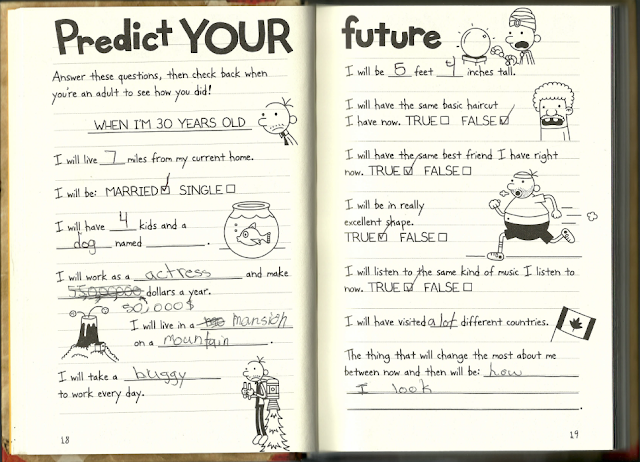 Predict YOUR
Answer these questions, then check back when
you're an adult to see how you did!
WHEN I'M 30 YEARS OLD
I will live 7 miles from my current home.
I will be: MARRIED ☑ SINGLE ☐
I will have 4 kids and a
dog named ________.
I will work as a actress and make
dollars a year.
80,000$
I will live in a mansion
on a mountain.
I will take a buggy
to work every day.
18
future
I will be 5 feet 4 inches tall.
I will have the same basic haircut
I have now. TRUE ☐ FALSE ☑
I will have the same best friend I have right
now. TRUE ☑ FALSE ☐
I will be in really
excellent shape.
TRUE ☑ FALSE ☐
I will listen to the same kind of music I listen to
now. TRUE ☑ FALSE ☐
I will have visited alot different countries.
The thing that will change the most about me
between now and then will be: how
I look
19